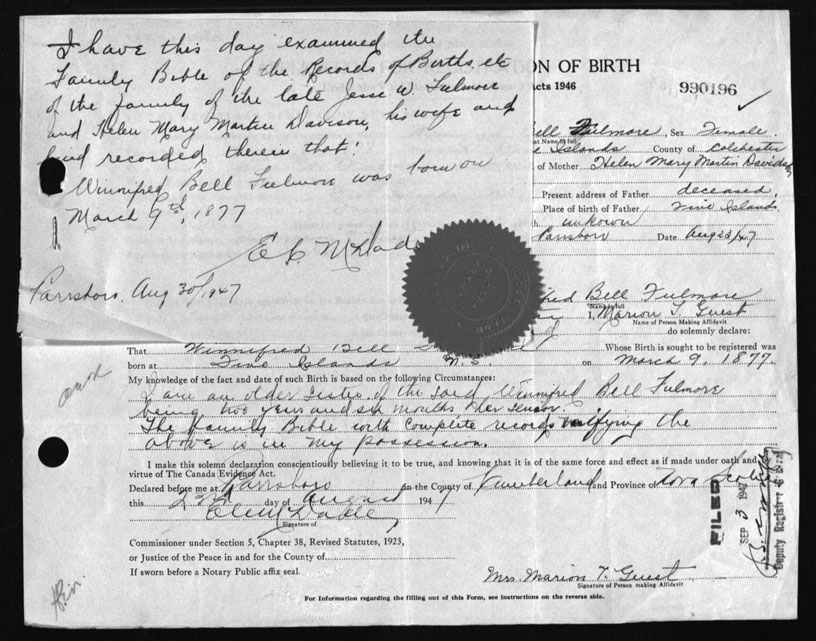 I have this day examined the
Family Bible of the Records of Births etc
of the family of the late Jesse W. Fulmore
and Helen Mary Martin Davison, his wife and
find recorded therein that:
Winnifred Bell Fulmore was born on
March 9th, 1877
E C McDade
Parrsboro. Aug 30/1947
ON OF BIRTH
Acts 1946
990196
Bell Fulmore, Sex Female.
Name in full
Islands County of Colchester
of Mother Helen Mary Martin Davidson
Present address of Father deceased,
Place of birth of Father Five Islands
h unkown
Parrsboro Date Aug 23/47
fred Bell Fulmore
Name in full
I, Marion T. Guest
Name of Person Making Affidavit
do solemnly declare:
That Winnifred Bell
Whose Birth is sought to be registered was
born at Five Islands N.S. on March 9, 1877.
My knowledge of the fact and date of such Birth is based on the following Circumstances:
I am an older sister of the said Winnifred Bell Fulmore
being two years and six months her senior.
The family Bible with complete records verifying the
above is in my possession.
I make this solemn declaration conscientiously believing it to be true, and knowing that it is of the same force and effect as if made under oath and
virtue of The Canada Evidence Act.
Declared before me at Parrsboro in the County of Cumberland and Province of Nova Scotia
this day of August 194
Signature of
Commissioner under Section 5, Chapter 38, Revised Statutes, 1923,
or Justice of the Peace in and for the County of
If sworn before a Notary Public affix seal.
Mrs. Marion T. Guest
Signature of Person making Affidavit
For Information regarding the filling out of this Form, see instructions on the reverse side.
FILED
SEP 3 1947
Deputy Registrar